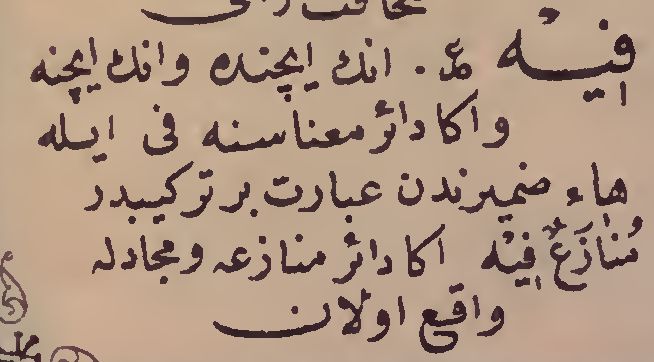 فِيْه عد. انك ايچنده وانك ايچنه
واكا دائر معناسنه فى ايله
هاء ضميرندن عبارت بر تركيبدر
مُنَازَعٌ فِيْه اكا دائر منازعه ومجادله
واقع اولان